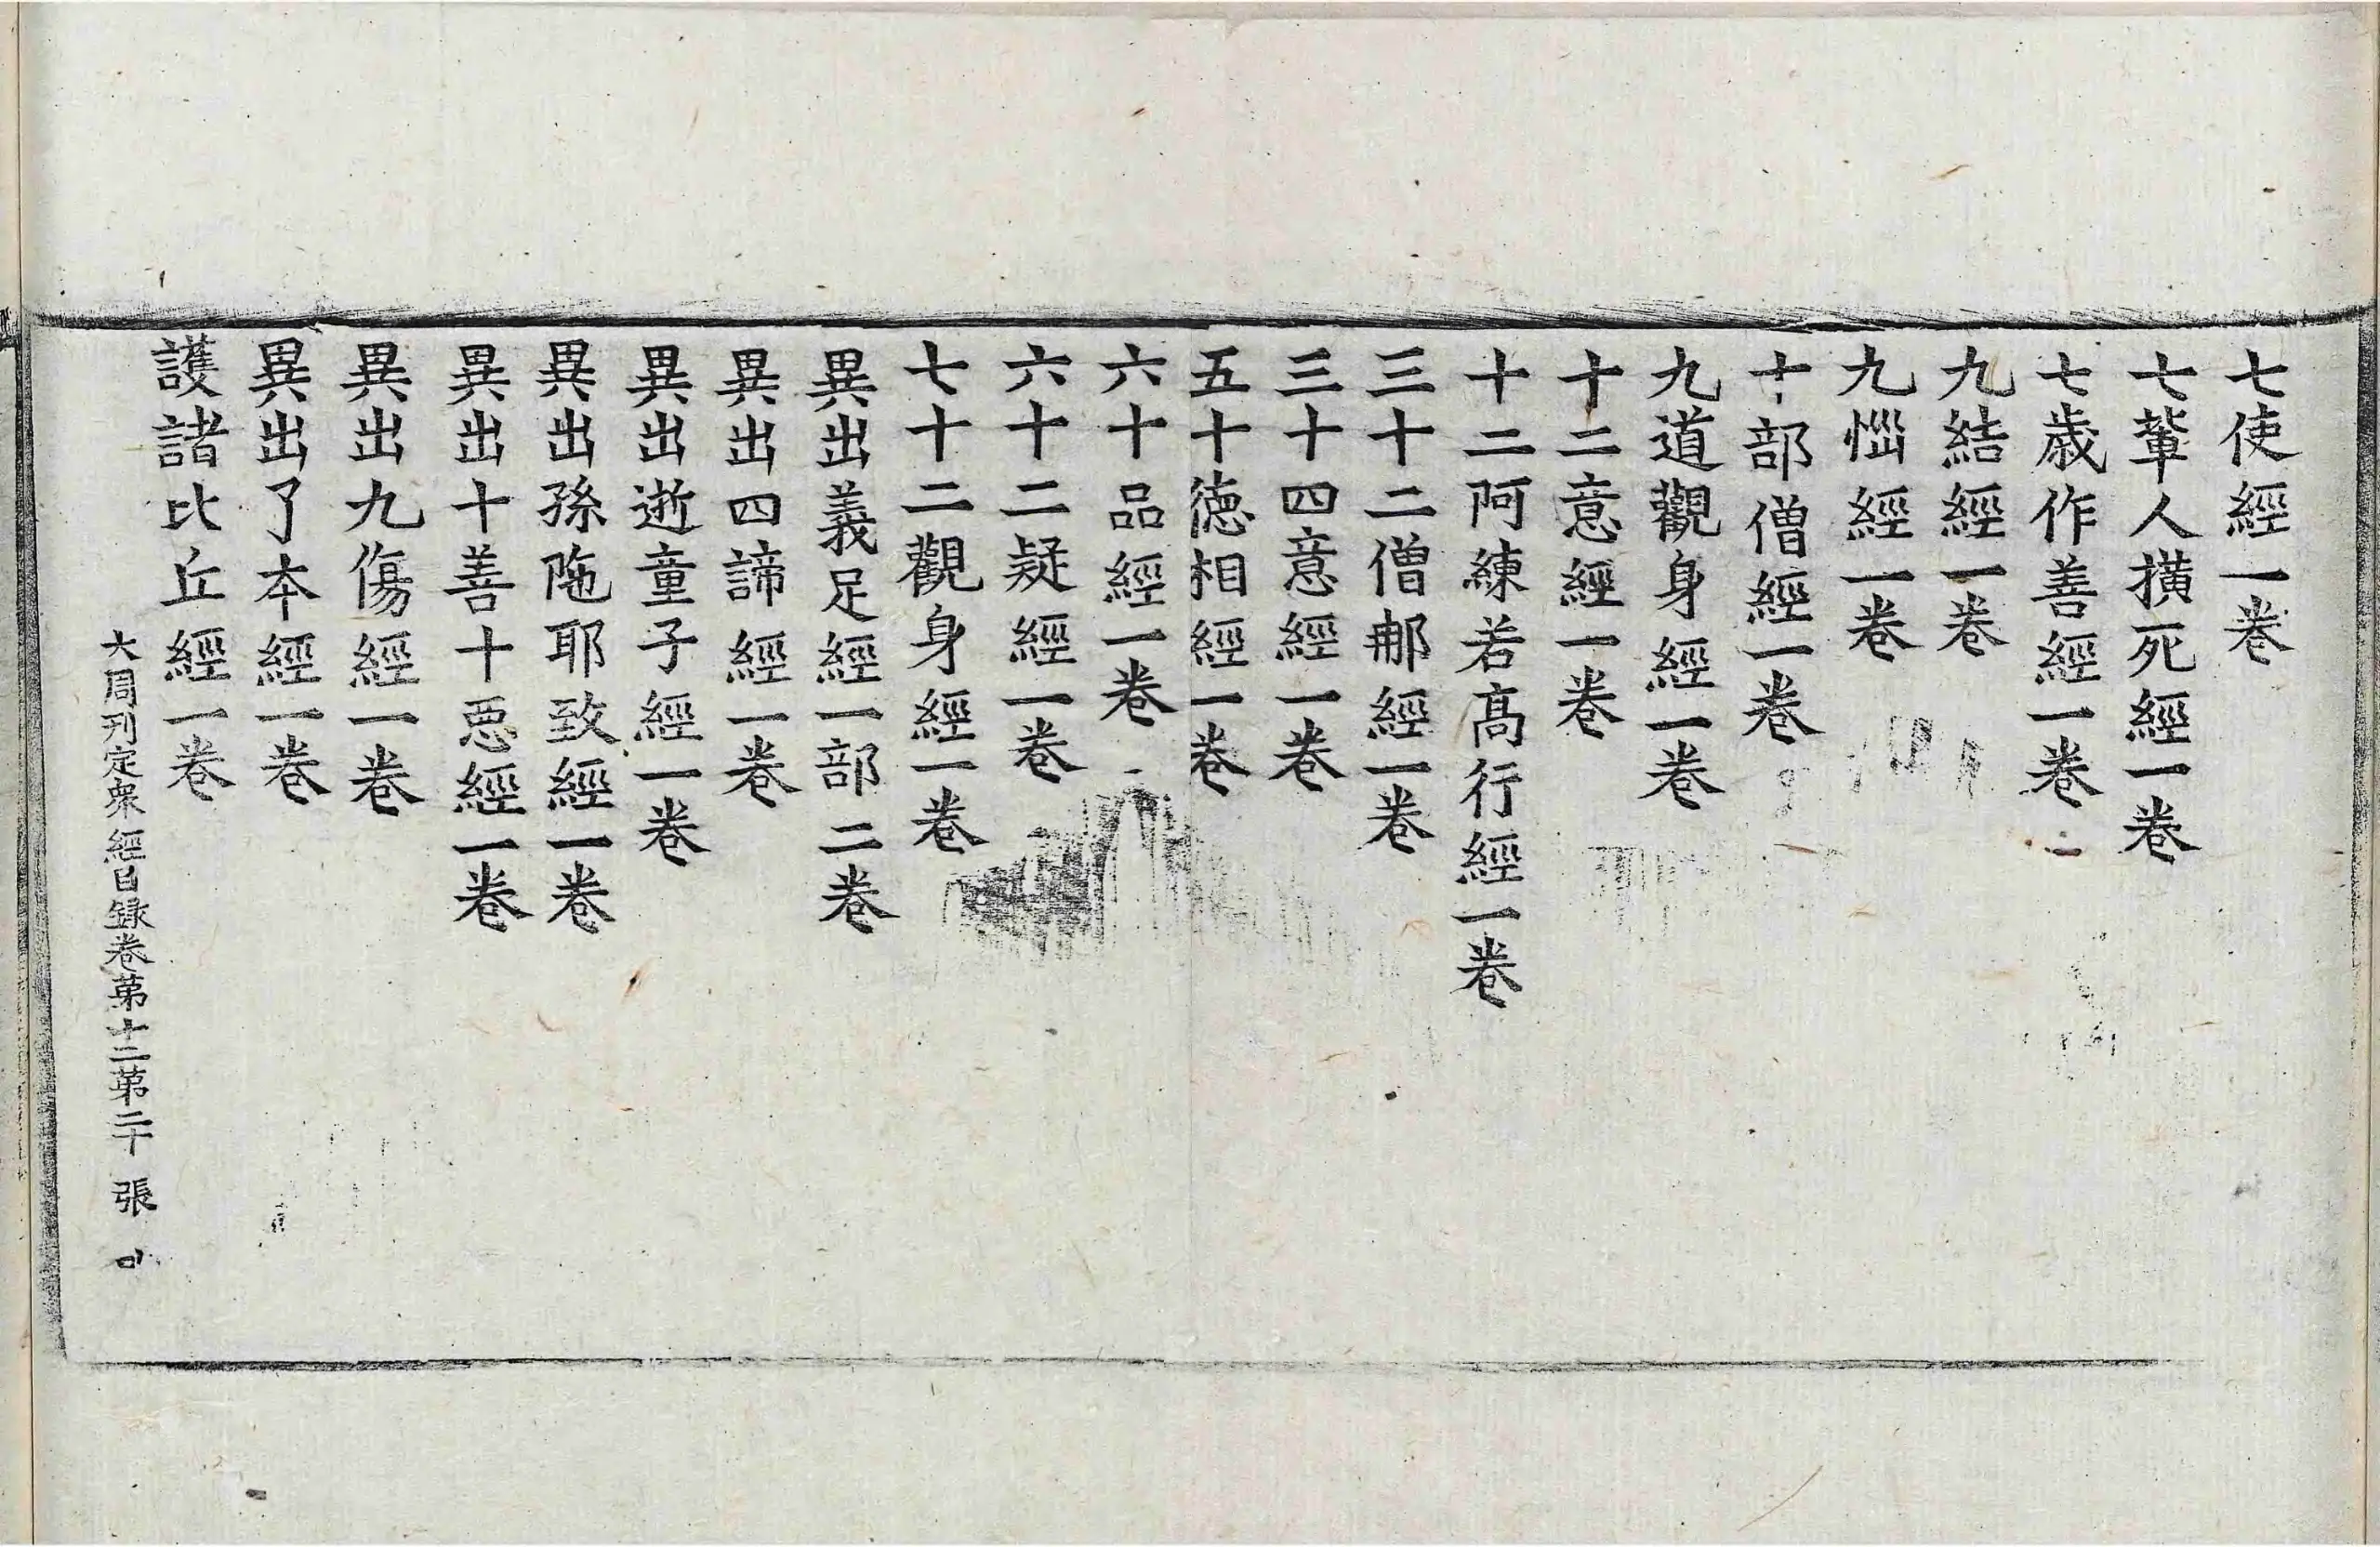 七使經一卷
七輩人橫死經一卷
七歲作善經一卷
九結經一卷
九惱經一卷
十部僧經一卷
九道觀身經一卷
十二意經一卷
十二阿練若高行經一卷
三十二僧那經一卷
三十四意經一卷
五十德相經一卷
六十品經一卷
六十二疑經一卷
七十二觀身經一卷
異出義足經一部二卷
異出四諦經一卷
異出逝童子經一卷
異出孫陁耶致經一卷
異出十善十惡經一卷
異出九傷經一卷
異出了本經一卷
護諸比丘經一卷
大周刊定衆經目錄卷第十二第二十張